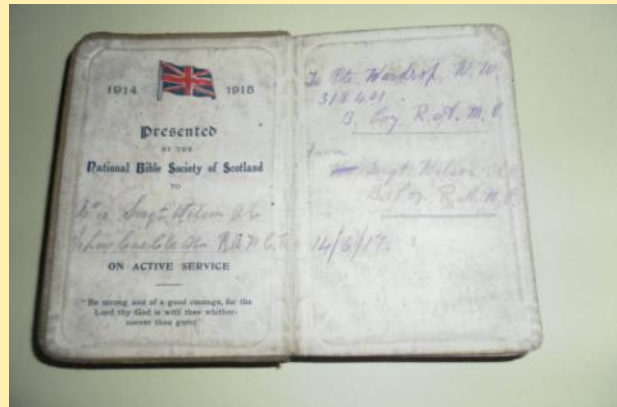 1914 1918
Presented
BY THE
National Bible Society of Scotland
TO
Sergt. Wilson
R.A.M.C.
ON ACTIVE SERVICE
"Be strong and of a good courage, for the
Lord thy God is with thee whither-
soever thou goest"
To Pte. Wardrop, W. W.
318401.
B. Coy R.A.M.C.
From
Sergt. Wilson
R.A.M.C.
14/3/17.